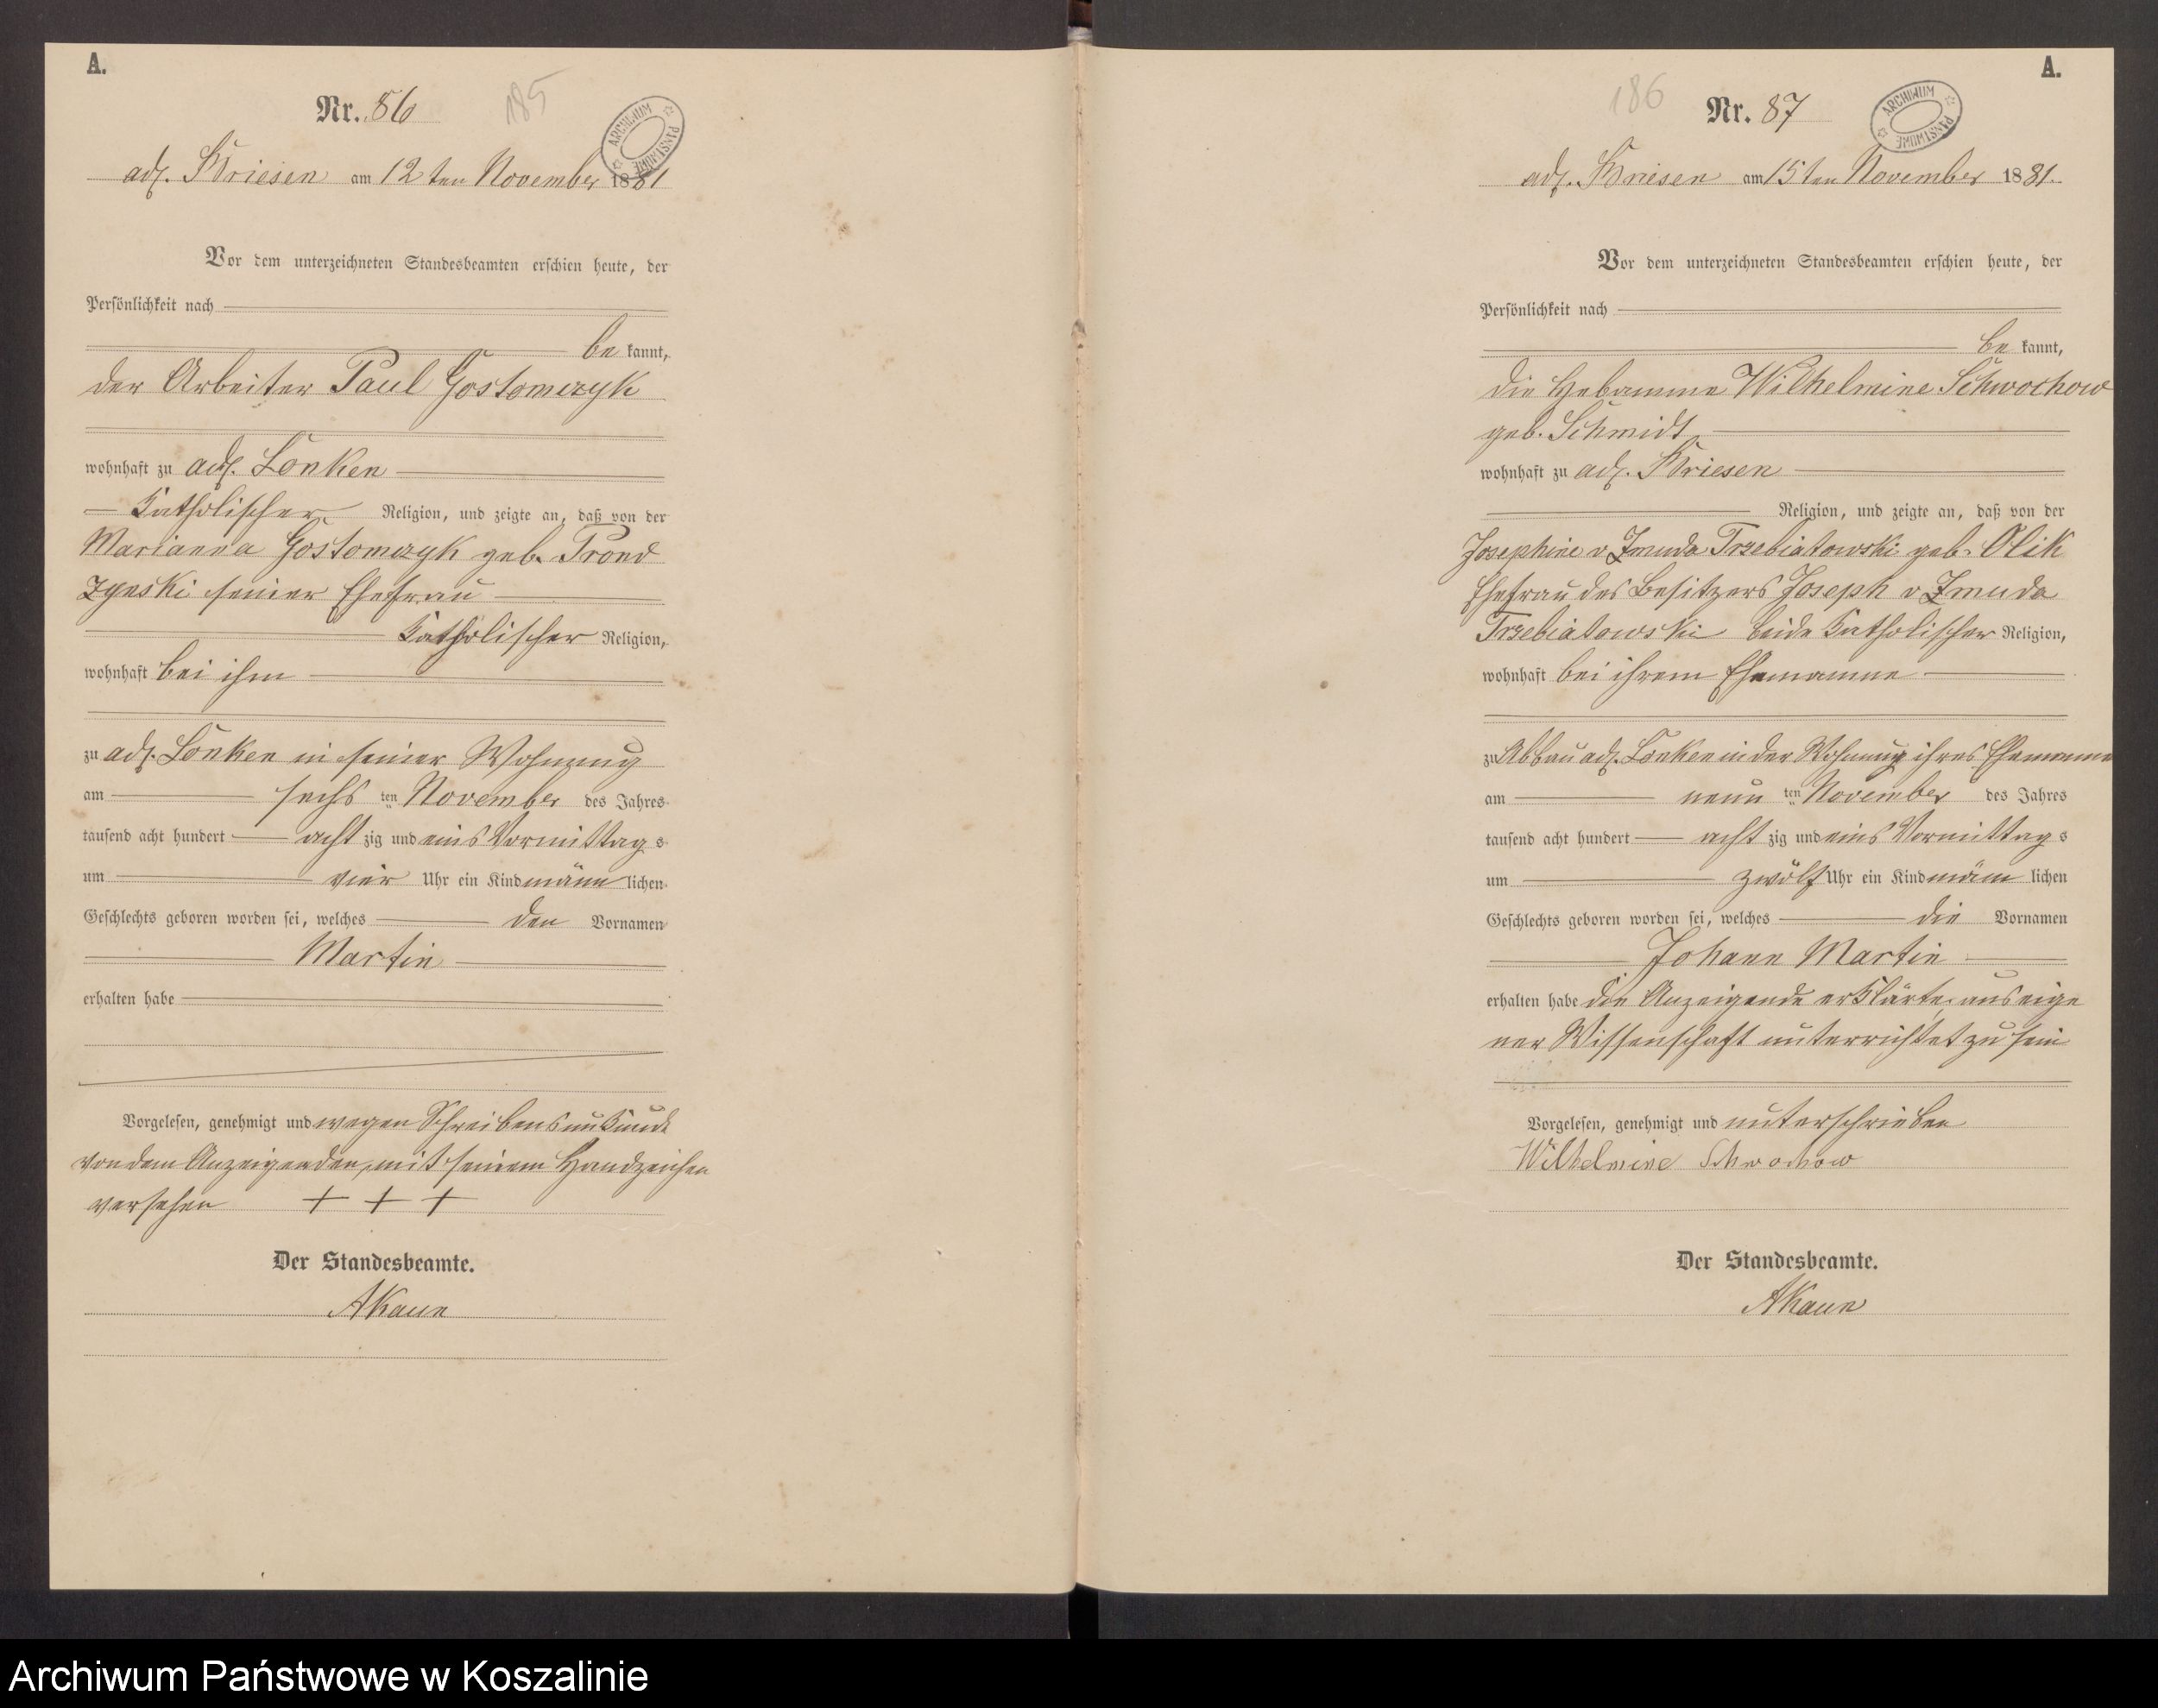 A.
Nr. 86
185
ARCHIWUM PAŃSTWOWE
adl. Briesen am 12 ten November 1881
Vor dem unterzeichneten Standesbeamten erschien heute, der
Persönlichkeit nach
be kannt,
der Arbeiter Paul Gostomczyk
wohnhaft zu adl. Lonken
Katholischer Religion, und zeigte an, daß von der
Marianna Gostomczyk geb. Prond
zynski seiner Ehefrau
Katholischer Religion,
wohnhaft bei ihm
zu adl. Lonken in seiner Wohnung
am sechs ten November des Jahres
tausend acht hundert acht zig und eins Vormittag s
um vier Uhr ein Kind männ lichen
Geschlechts geboren worden sei, welches den Vornamen
Martin
erhalten habe
Vorgelesen, genehmigt und wegen Schreibensunkunde
von dem Anzeigenden, mit seinem Handzeichen
versehen + + +
Der Standesbeamte.
AKaun
A.
186
Nr. 87
ARCHIWUM PAŃSTWOWE
adl. Briesen am 15 ten November 1881.
Vor dem unterzeichneten Standesbeamten erschien heute, der
Persönlichkeit nach
be kannt,
die Hebamme Wilhelmine Schwochow
geb. Schmidt
wohnhaft zu adl. Briesen
Religion, und zeigte an, daß von der
Josephine v Zmuda Trzebiatowski geb. Olik
Ehefrau des Besitzers Joseph v Zmuda
Trzebiatowski beide Katholischer Religion,
wohnhaft bei ihrem Ehemanne
zu Abbau adl. Lonken in der Wohnung ihres Ehemanns
am neun ten November des Jahres
tausend acht hundert acht zig und eins Vormittag s
um zwölf Uhr ein Kind männ lichen
Geschlechts geboren worden sei, welches die Vornamen
Johann Martin
erhalten habe die Anzeigende erklärte, aus eige
ner Wissenschaft unterrichtet zu sein
Vorgelesen, genehmigt und unterschrieben
Wilhelmine Schwochow
Der Standesbeamte.
AKaun
Archiwum Państwowe w Koszalinie